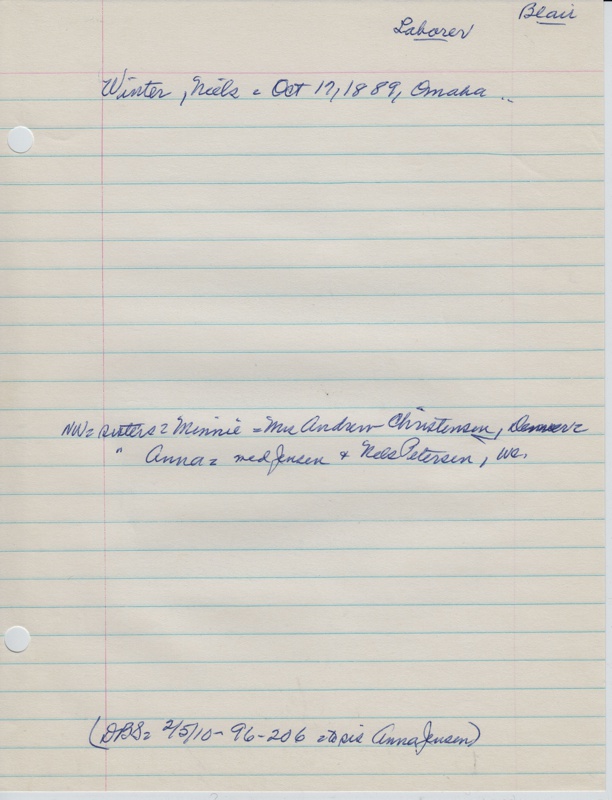 Blair
Laborer
Winter, Niels = Oct 17, 1889, Omaha ..
NW= sisters = Minnie = Mrs Andrew Christensen, Denver =
" Anna = med Jensen & Nels Petersen, WC.
(DBS= 2/5/10-96-206 =to sis Anna Jensen)